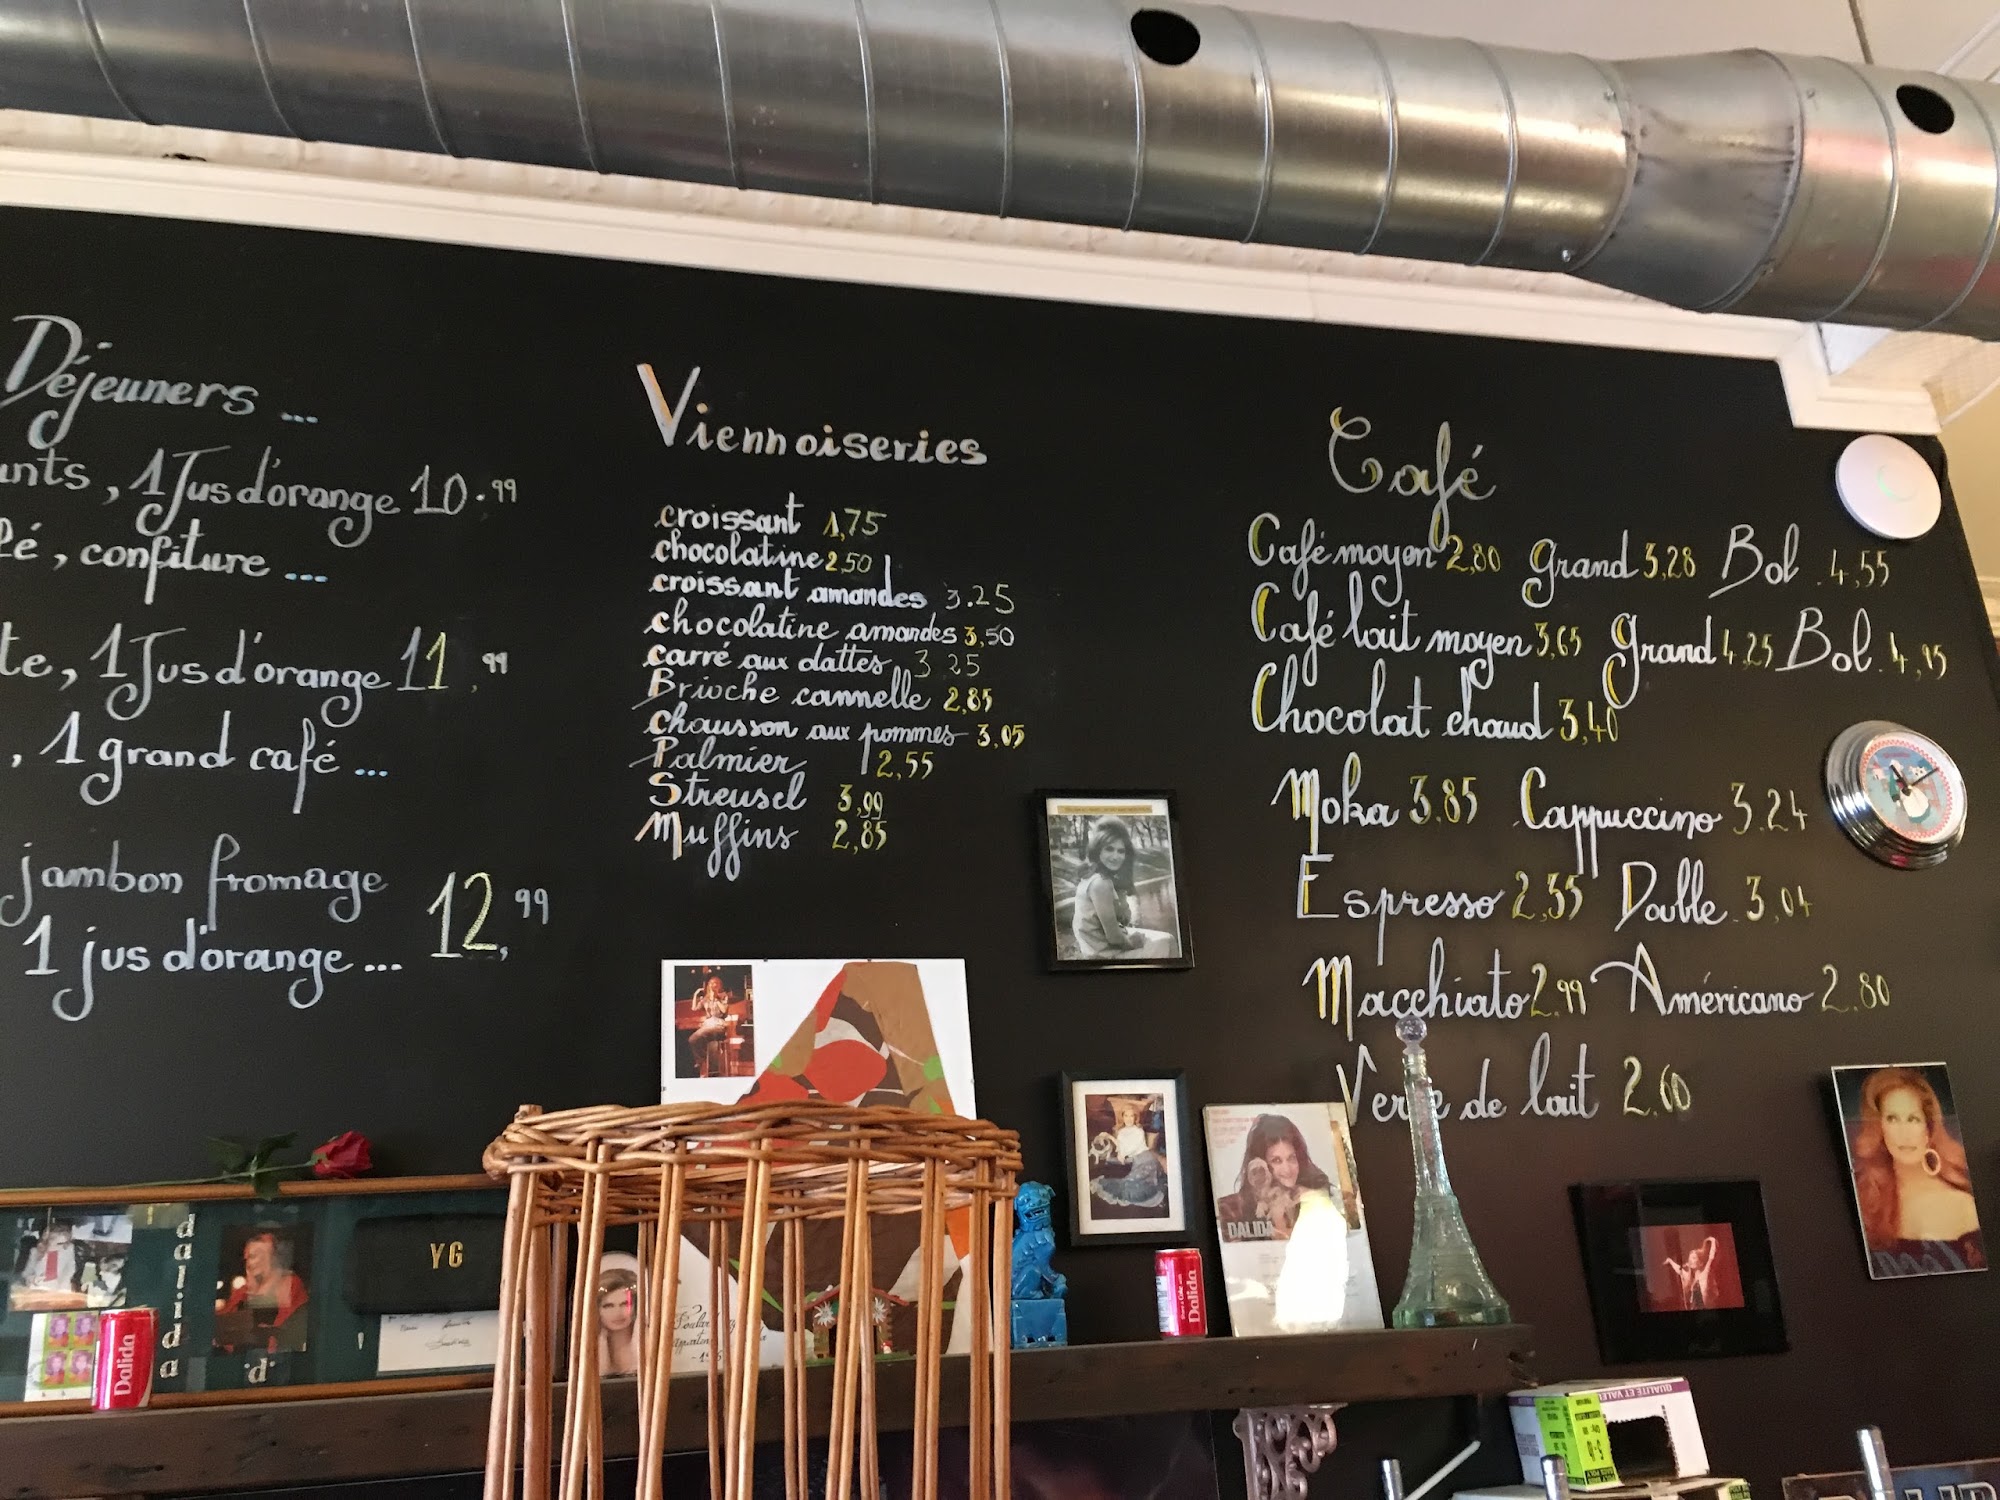 Déjeuners ...
, 1 Jus d'orange 10.99
, confiture ...
, 1 Jus d'orange 11,99
, 1 grand café ...
jambon fromage
1 jus d'orange ... 12,99
Viennoiseries
croissant 1,75
chocolatine 2,50
croissant amandes 3.25
chocolatine amandes 3,50
carré aux dattes 3.25
Brioche cannelle 2,85
chausson aux pommes 3,05
Palmier 2,55
Streusel 3,99
Muffins 2,85
Café
Café moyen 2,80 grand 3,28 Bol . 4,55
Café lait moyen 3,65 grand 4,25 Bol . 4,95
Chocolat chaud 3,40
Moka 3.85 Cappuccino 3.24
Espresso 2,35 Double . 3,04
Macchiato 2.99 Américano 2.80
Verre de lait 2.60
dalida
YG
Dalida
DALIDA
Dalida
QUALITÉ ET